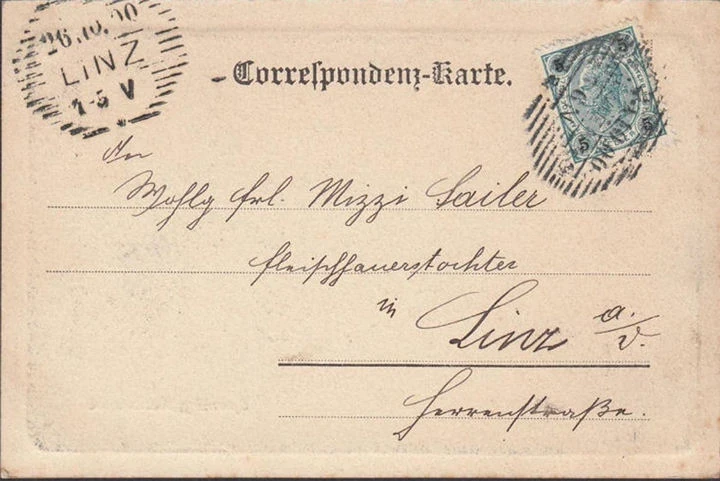 26.10.00
LINZ
1-5 V
Correspondenz-Karte.
5 5
5 5
An
Wohlg frl. Mizzi Sailer
fleischhauerstochter
in Linz a./D.
Herrenstraße.